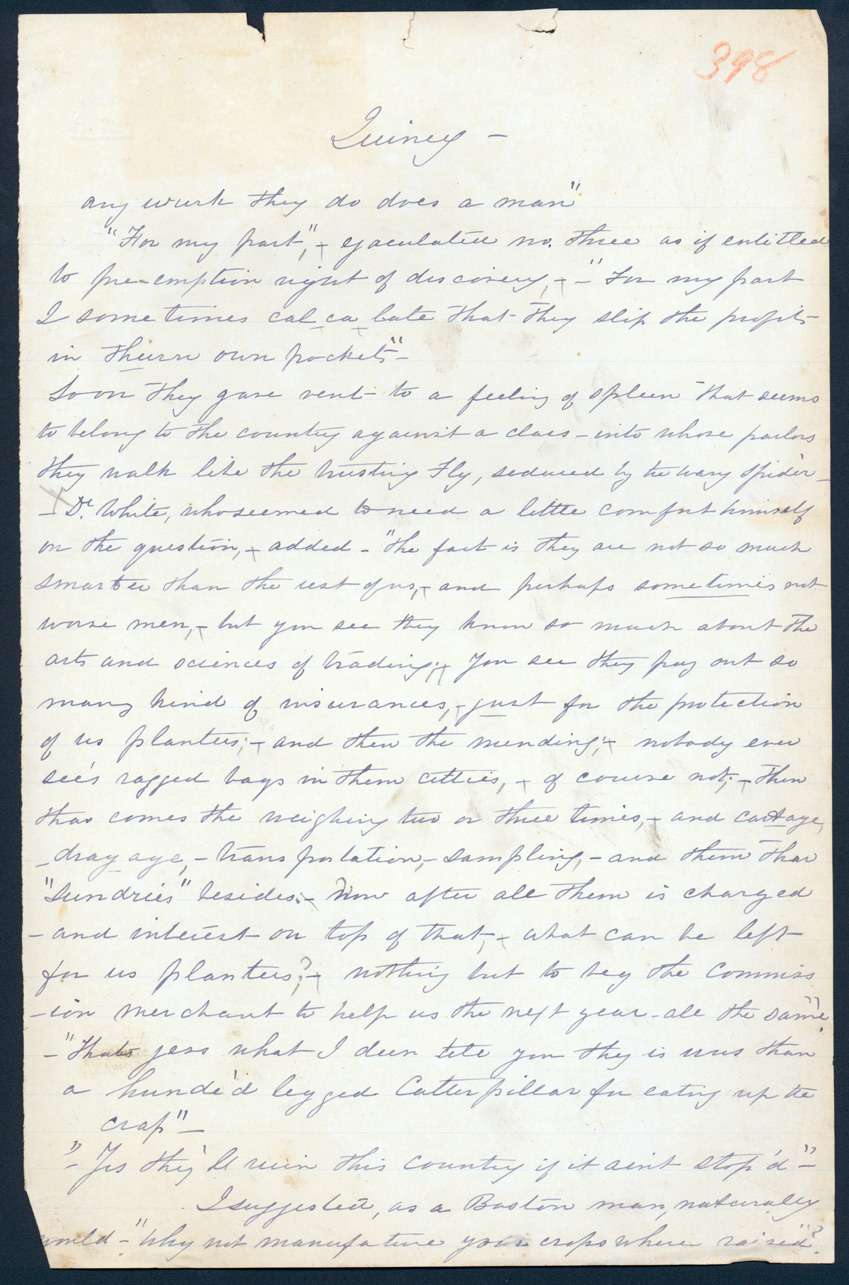 398
Quincy —
any wurk they do does a man"
"For my part", – ejaculated no. three as if entitled
to pre-emption right of discovery, – – "For my part
I some times cal-ca late that they slip the profits
in theurn own pockets" –
Soon they gave vent to a feeling of spleen that seems
to belong to the country against a class – into whose parlors
they walk like the trusting Fly, seduced by the wary spider –
– Dr. White, who seemed to need a little comfort himself
on the question, – added – "the fact is they are not so much
smarter than the rest of us, – and perhaps sometimes not
worse men, – but you see they know so much about the
arts and sciences of trading; – you see they pay out so
many kind of insurances, – just for the protection
of us planters; – and then the mending; – nobody ever
see's ragged bags in them citties, – of course not; – then
thar comes the weighing two or three times, – and cartage,
– dray age, – transportation, – sampling, – and them thar
"Sundries" besides. – Now after all them is charged
– and interest on top of that, – what can be left
for us planters?, – nothing but to beg the Commiss
– ion merchant to help us the next year – all the same".
– "Thats jess what I dun tele you they is wus than
a hunde'd legged Catterpillar for eating up the
crap" –
"– Yis they'll ruin this country if it aint stop'd" –
I suggested, as a Boston man, naturally
would – "Why not manufacture your crops where raised"?